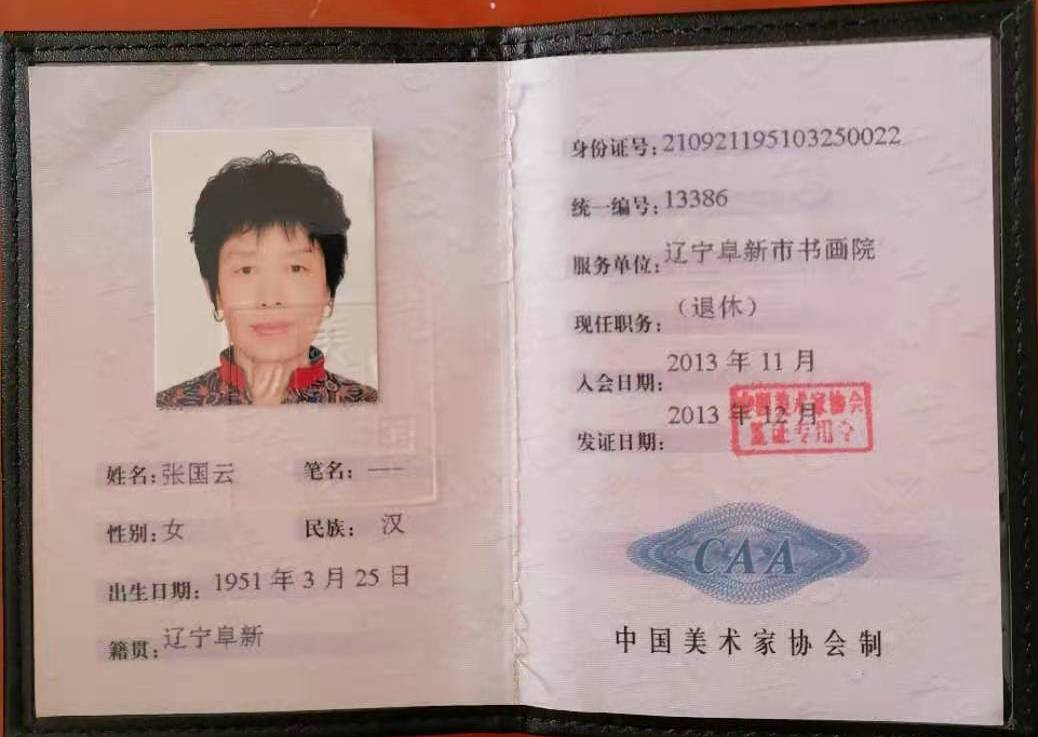 姓名：张国云 笔名：——
性别：女 民族：汉
出生日期：1951 年 3 月 25 日
籍贯：辽宁阜新
身份证号：210921195103250022
统一编号：13386
服务单位：辽宁阜新市书画院
现任职务：（退休）
入会日期：2013 年 11 月
发证日期：2013 年 12 月
中国美术家协会
CAA
中国美术家协会制